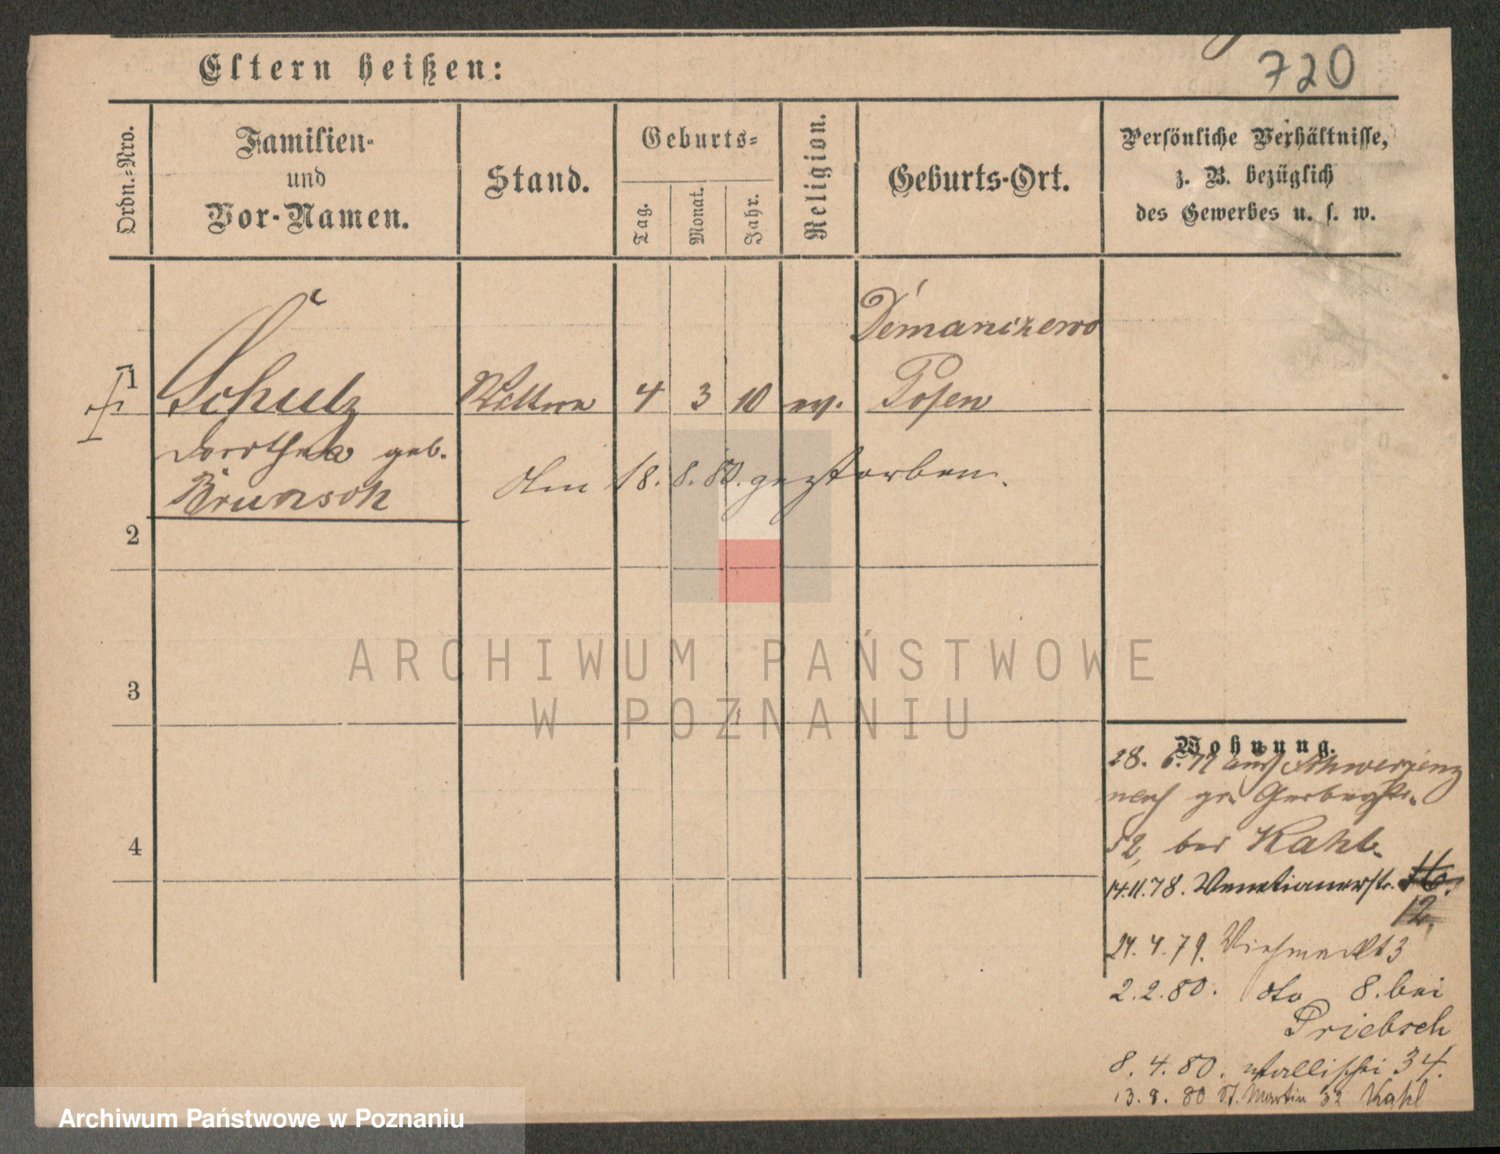 720
Eltern heißen:
Ordn.-Nro.
Familien-
und
Vor-Namen.
Stand.
Geburts-
Tag.
Monat.
Jahr.
Religion.
Geburts-Ort.
Persönliche Verhältnisse,
z. B. bezüglich
des Gewerbes u. s. w.
1
Schulz
4 3 10 ev.
Posen
Dorothea geb.
Brunsch
Am 18. 8. 80. gestorben.
2
3
4
ARCHIWUM PAŃSTWOWE
W POZNANIU
Wohnung.
28. 6. 77 aus Schwersenz
nach gr. Gerberstr.
52, bei Kahl.
14.11.78. Venetianerstr. 16.
12.
24. 4. 79. Viehmarkt 3
2. 2. 80. dto 8. bei
Priebsch
8. 4. 80. Wallischei 34.
13. 8. 80 St. Martin 32 Kahl
Archiwum Państwowe w Poznaniu